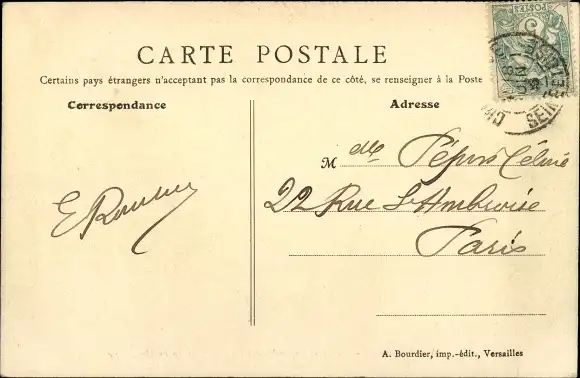 CARTE POSTALE
Certains pays étrangers n'acceptant pas la correspondance de ce côté, se renseigner à la Poste
Correspondance
Adresse
M elle Pépin Céline
22 Rue St Ambroise
Paris
E
A. Bourdier, imp.-édit., Versailles
POSTES
SEINE